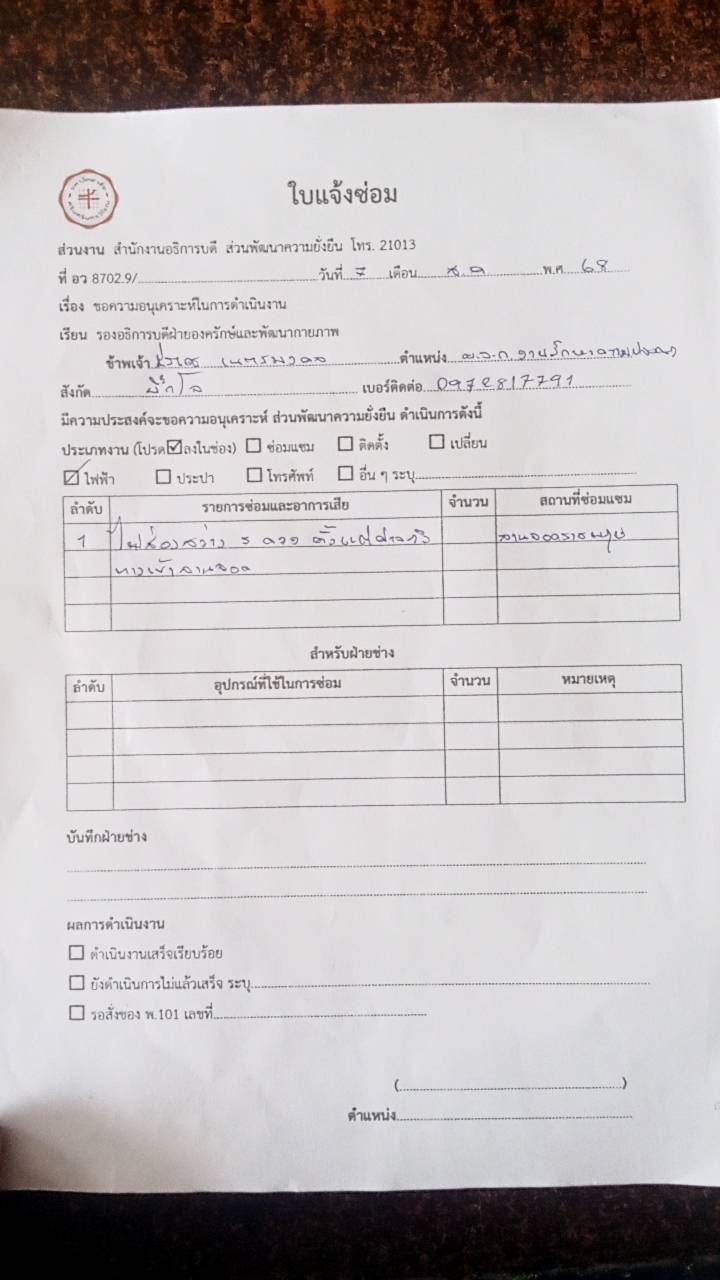 ใบแจ้งซ่อม
ส่วนงาน สำนักงานอธิการบดี ส่วนพัฒนาความยั่งยืน โทร. 21013
ที่ อว 8702.9/ วันที่ 7 เดือน ต.ค พ.ศ 68
เรื่อง ขอความอนุเคราะห์ในการดำเนินงาน
เรียน รองอธิการบดีฝ่ายองครักษ์และพัฒนากายภาพ
ข้าพเจ้า ตำแหน่ง
สังกัด เบอร์ติดต่อ 0972817791
มีความประสงค์จะขอความอนุเคราะห์ ส่วนพัฒนาความยั่งยืน ดำเนินการดังนี้
ประเภทงาน (โปรด ลงในช่อง) ซ่อมแซม ติดตั้ง เปลี่ยน
ไฟฟ้า ประปา โทรศัพท์ อื่น ๆ ระบุ
ลำดับ รายการซ่อมและอาการเสีย จำนวน สถานที่ซ่อมแซม
1 ไฟส่องสว่าง 5 ดวง ตั้งแต่
ทางเข้าลานจอด
สำหรับฝ่ายช่าง
ลำดับ อุปกรณ์ที่ใช้ในการซ่อม จำนวน หมายเหตุ
บันทึกฝ่ายช่าง
ผลการดำเนินงาน
ดำเนินงานเสร็จเรียบร้อย
ยังดำเนินการไม่แล้วเสร็จ ระบุ
รอสั่งของ พ.101 เลขที่
( )
ตำแหน่ง